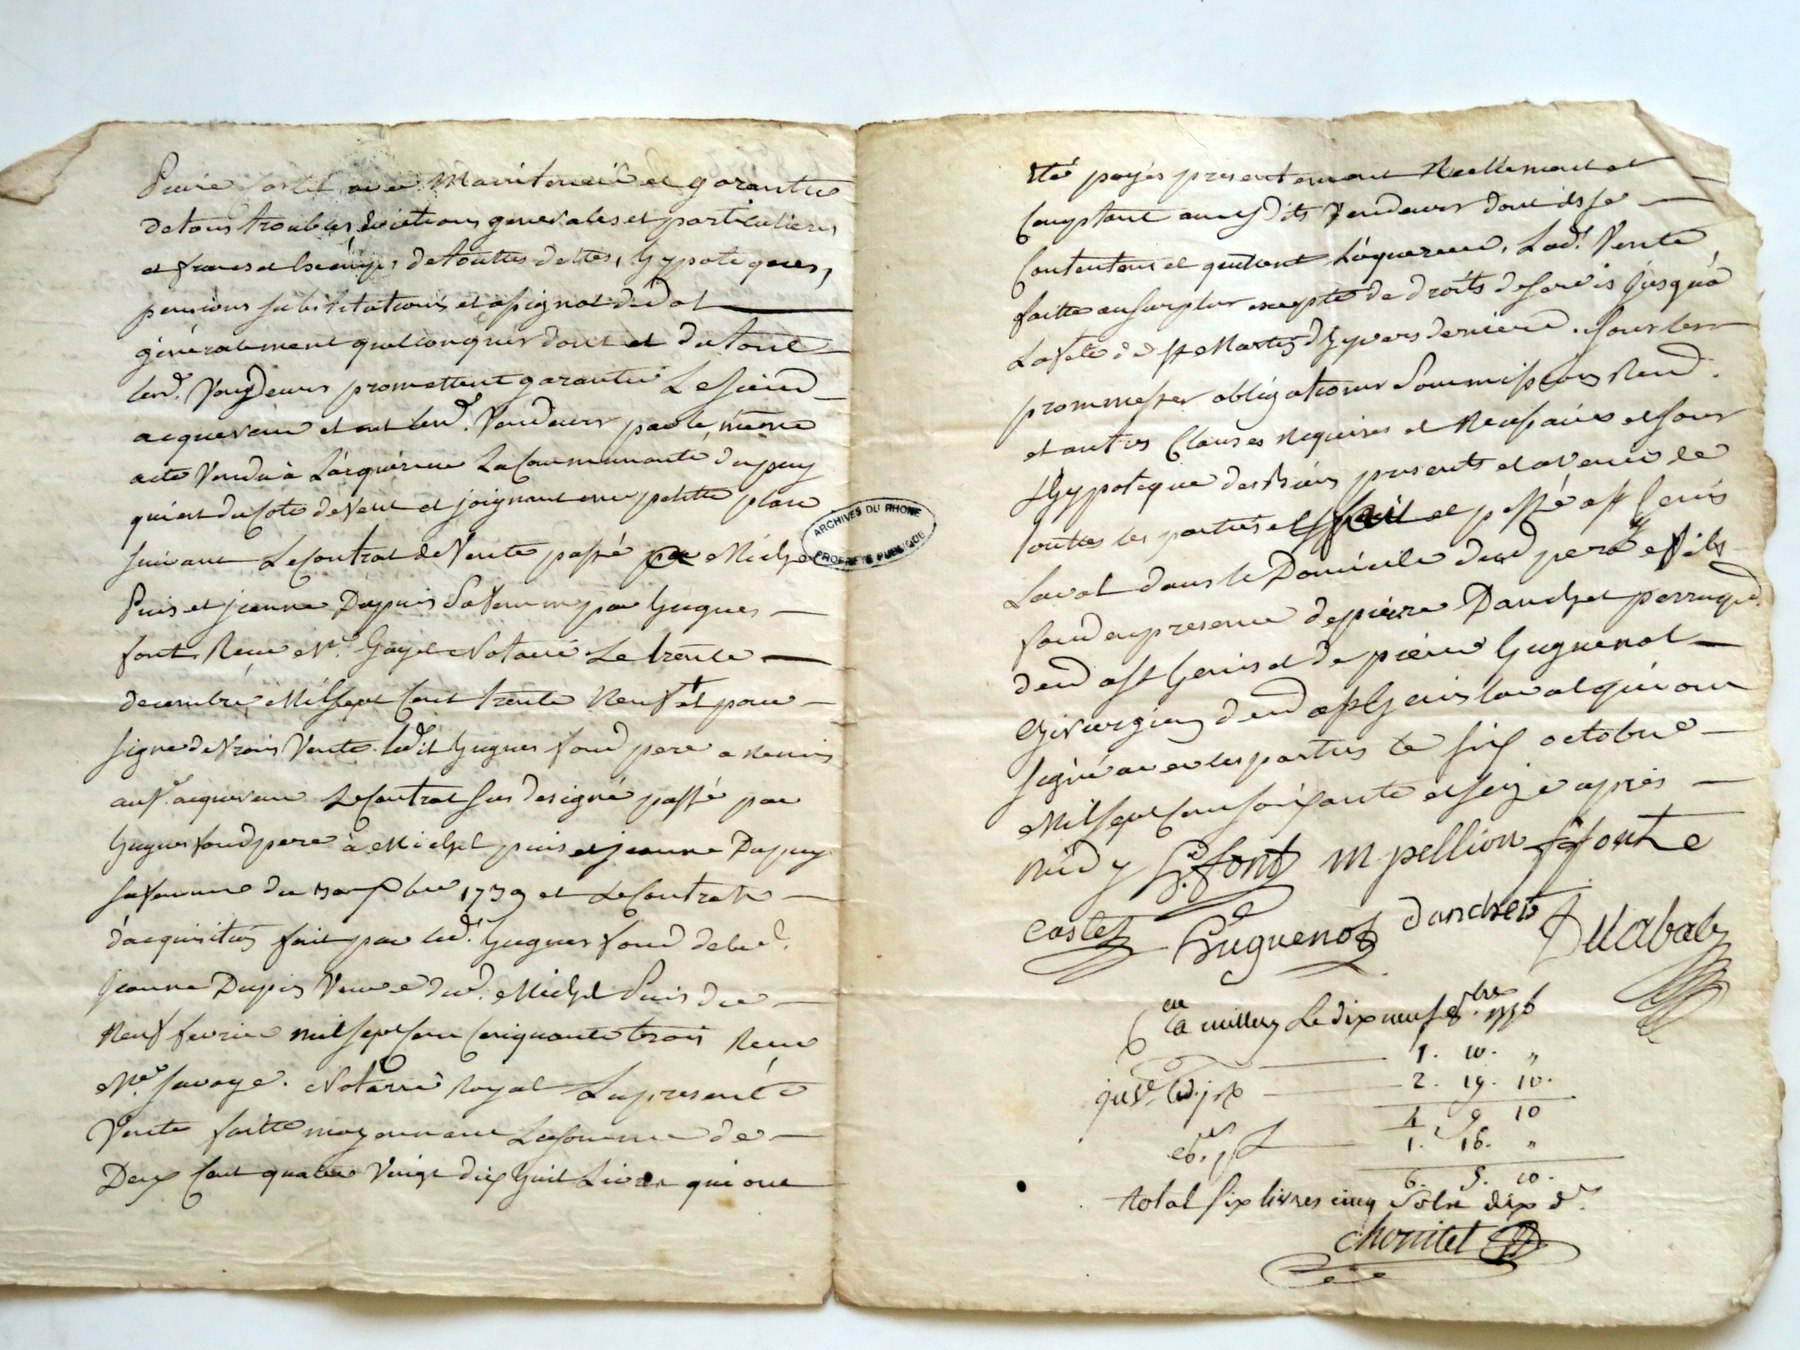 avec Maintenüe et garantie
de tous troubles, evictions generales et particulieres
et francs et charges, de touttes dettes, hypoteques,
pensions substitutions et assignat de dot
généralement quelconques dont et du tout
lesd. Vendeurs promettent garantir Le sieur
acquereur et ont lesd. Vendeurs par le même
acte Vendu à L'acquereur La Communauté du puy
qui est du Coté de Vent et joignant une petitte place
suivant Le Contrat de Vente passé par Michel
Puis et jeanne Dupuis sa femme par hugues
font Reçu Me. Gayet Notaire Le trente
decembre Mil sept Cent trente Neuf et pour
signe de Vraie Vente led. hugues fond pere a Remis
aud. acquereur Le Contrat sus designé passé par
hugues fond pere à Michel puis et jeanne Dupuy
sa femme du 30 Xbre 1739 et Le Contrat
d'acquisition fait par led. hugues fond de lad.
jeanne Dupuis Veuve dud. Michel Puis du
Neuf fevrier mil sept cent Cinquante trois Reçu
Me. Savoye. Notaire Royal La presente
Vente faitte moyennant La somme de
Deux Cent quatre Vingt dix huit Livres qui ont
ARCHIVES DU RHONE
PROPRIETE PUBLIQUE
été payés presentement Reellement et
Comptant auxdits Vendeurs dont ils se
Contentent et quittent L'aquereur. Lad. Vente
faitte au surplus exempte de droits de servis jusqu'à
La fete de St Martin d'hyvert derniere. sous les
prommesses obligations Soummissions Rend.
et autres Clauses Requises et Necessaires et sous
L'hypoteque des Biens presents et avenir de
touttes les parties et fait et passé a St Genis
Laval dans le Domicile desd pere et fils
fond en presence de pierre Danchet perruquier
dud St Genis et de pierre huguenot
chirurgien dud St Genis laval qui ont
signé avec les parties le six octobre
Mil sept cent soixante et seize après
midy font M pellion fonte
Castel huguenot danchet Delabaly
Cee a millery Le dix neuf 8bre 1776
1. 10. "
2. 19. 10.
4 9 10
1. 16. "
6. 5. 10.
total six livres cinq Sols dix d.
chonitel